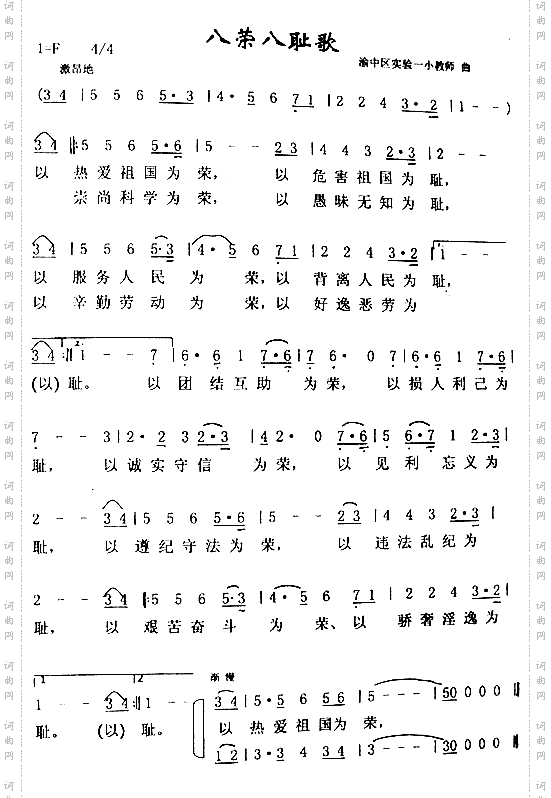 八荣八耻歌
1=F 4/4
激昂地
渝中区实验一小教师 曲
(3 4 | 5 5 6 5·3 | 4· 5 6 7 1 | 2 2 4 3·2 | 1 - -)
3 4 ‖: 5 5 5 5·6 | 5 - - 2 3 | 4 4 3 2·3 | 2 - -
以 热爱祖国为荣, 以 危害祖国为耻,
崇尚科学为荣, 以 愚昧无知为耻,
3 4 | 5 5 6 5·3 | 4· 5 6 7 1 | 2 2 4 3·2 | 1 - -
以 服务人民 为 荣,以 背离人民为耻,
以 辛勤劳动 为 荣,以 好逸恶劳为
2.
3 4 :‖ 1 - - 7 | 6· 6 1 7·6 | 7 6· 0 7 | 6· 6 1 7·6 |
(以)耻。 以 团结互助 为荣, 以损人利己为
7 - - 3 | 2· 2 3 2·3 | 4 2· 0 7·6 | 5 6·7 1 2·3 |
耻, 以诚实守信 为荣, 以 见利 忘义为
2 - - 3 4 | 5 5 6 5·6 | 5 - - 2 3 | 4 4 3 2·3 |
耻, 以 遵纪守法为荣, 以 违法乱纪为
2 - - 3 4 ‖: 5 5 6 5·3 | 4· 5 6 7 1 | 2 2 4 3·2 |
耻, 以 艰苦奋斗 为 荣、以 骄奢淫逸为
1 2 渐 慢
1 - - 3 4 :‖ 1 - - 3 4 | 5·5 6 5 6 | 5 - - | 50 0 0 0 ‖
耻。 (以)耻。 以热爱祖国为 荣,
1 2 | 3·3 4 3 4 | 3 - - | 30 0 0 0 ‖
词曲网